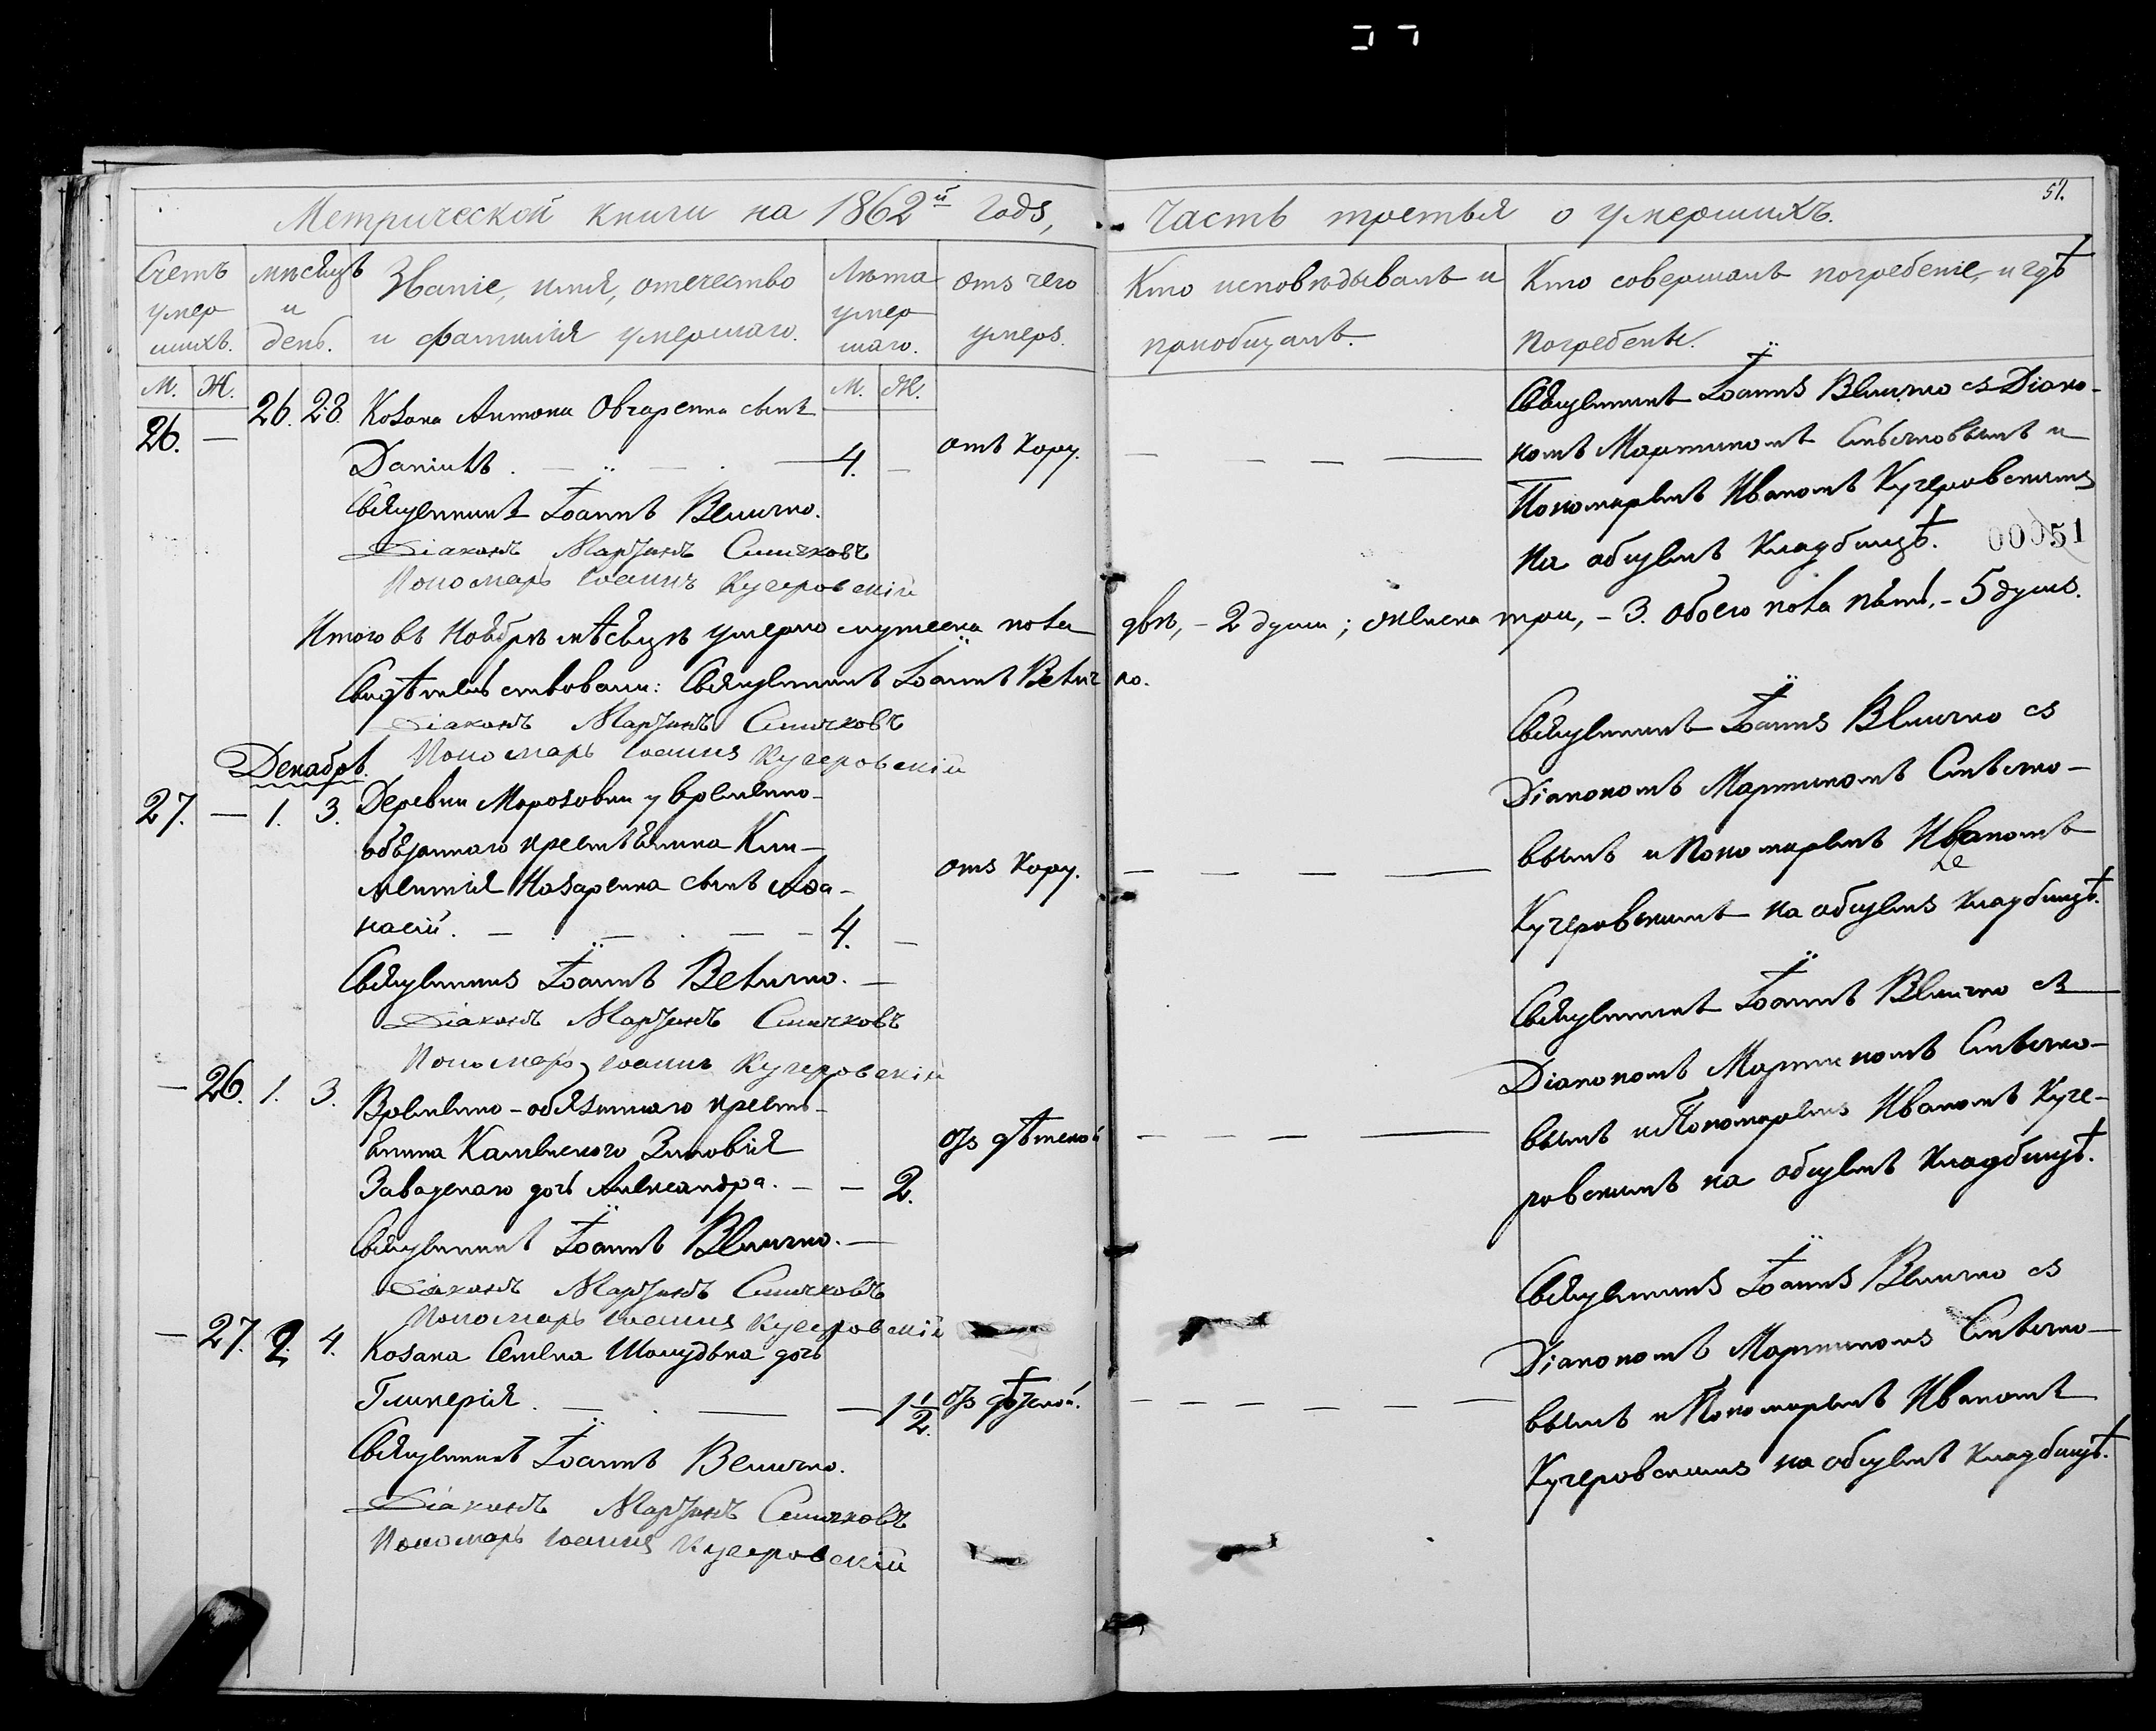 Метрической книги на 1862й годъ,
Счетъ умер шихъ.
мѣсяцъ и день.
Званіе, имя, отчество и фамилія умершаго.
Лѣта умер шаго.
отъ чего умеръ.
М. Ж.
М. Ж.
26. — 26. 28. Козака Антона Овчаренка сынъ
Даніилъ. 4. — отъ кору.
Священникъ Іоаннъ Величко.
Діаконъ Мартинъ Синчковъ
Пономарь Іоаннъ Кучеровскій
Итого въ Ноябрѣ мѣсяцѣ умерло мужеска пола
Свидѣтельствовали: Священникъ Іоаннъ Велич
Діаконъ Мартинъ Синчковъ
Пономарь Іоаннъ Кучеровскій
Декабрь.
27. — 1. 3. Деревни Морозовки у временно-
обязаннаго крестьянина Кли-
ментія Назаренка сынъ Афа-
насій. 4. — отъ кору.
Священникъ Іоаннъ Величко. —
Діаконъ Мартинъ Синчковъ
Пономарь Іоаннъ Кучеровскій
— 26. 1. 3. Временно-обязаннаго кресть-
янина Зиновія отъ дѣтской
дочь Александра. — — 2.
Священникъ Іоаннъ Величко. —
Діаконъ Мартинъ Синчковъ
Пономарь Іоаннъ Кучеровскій
— 27. 2. 4. Козака Семена дочь
Гликерія. — 1 1/2. отъ дѣтской.
Священникъ Іоаннъ Величко.
Діаконъ Мартинъ Синчковъ
Пономарь Іоаннъ Кучеровскій
51.
Часть третья о умершихъ.
Кто исповѣдывалъ и пріобщалъ.
Кто совершалъ погребеніе, и гдѣ погребены.
Священникъ Іоаннъ Величко съ Діако-
номъ Мартиномъ и
Пономаремъ Иваномъ Кучеровскимъ
на общемъ кладбищѣ.
00051
двѣ, - 2 души; женска три, - 3. обоего пола пять, - 5 душъ.
ко.
Священникъ Іоаннъ Величко съ
Діакономъ Мартиномъ
вымъ и Пономаремъ Иваномъ
Кучеровскимъ на общемъ кладбищѣ.
Священникъ Іоаннъ Величко съ
Діакономъ Мартиномъ
вымъ и Пономаремъ Иваномъ Куче-
ровскимъ на общемъ кладбищѣ.
Священникъ Іоаннъ Величко съ
Діакономъ Мартиномъ
вымъ и Пономаремъ Иваномъ
Кучеровскимъ на общемъ кладбищѣ.